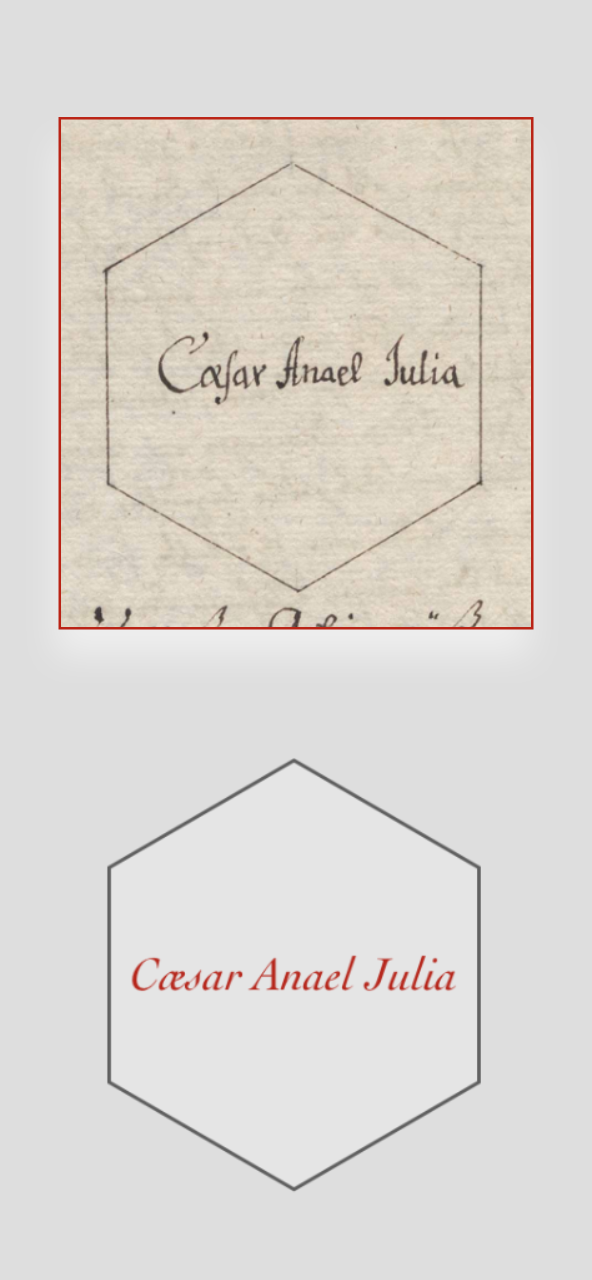 Cæſar Anael Julia
Cæsar Anael Julia